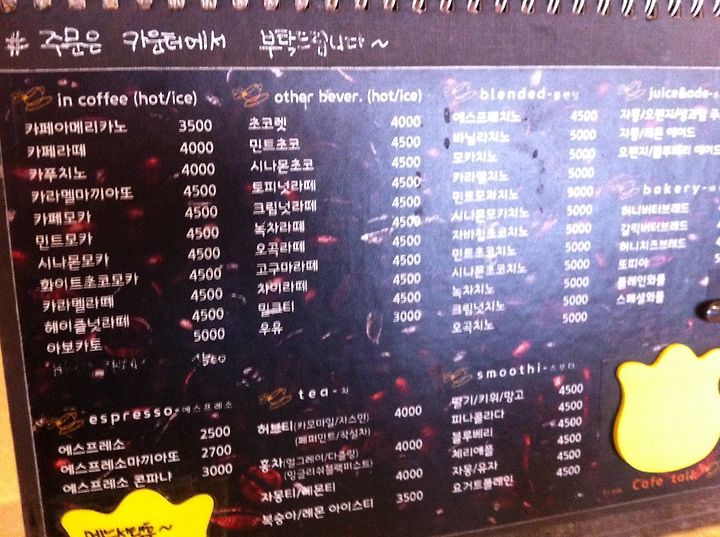 # 주문은 카운터에서 부탁드립니다~
in coffee (hot/ice)
카페아메리카노 3500
카페라떼 4000
카푸치노 4000
카라멜마끼아또 4500
카페모카 4500
민트모카 4500
시나몬모카 4500
화이트초코모카 4500
카라멜라떼 4500
헤이즐넛라떼 4500
아보카토 5000
other bever. (hot/ice)
초코렛 4000
민트초코 4500
시나몬초코 4500
토피넛라떼 4500
크림넛라떼 4500
녹차라떼 4500
오곡라떼 4500
고구마라떼 4500
차이라떼 4500
밀크티 4500
우유 3000
blended-
에스프레치노 4500
바닐라치노 5000
모카치노 5000
카라멜치노 5000
민트모카치노 5000
시나몬모카치노 5000
자바칩초코치노 5000
민트초코치노 5000
시나몬초코치노 5000
녹차치노 5000
크림넛치노 5000
오곡치노 5000
juice&ade-
자몽/오렌지/생과일 주
자몽/레몬 에이드
오렌지/블루베리 에이드
bakery-
허니버터브레드
갈릭버터브레드
허니치즈브레드
또띠아
플레인와플
스페셜와플
espresso-에스프레소
에스프레소 2500
에스프레소마끼아또 2700
에스프레소 콘파냐 3000
tea-차
허브티(카모마일/자스민) 4000
(페퍼민트/작설차)
홍차(얼그레이/다즐링) 4000
(잉글리쉬블랙퍼스트)
자몽티/레몬티 4000
복숭아/레몬 아이스티 3500
smoothi-스무디
딸기/키위/망고 4500
피나콜라다 4500
블루베리 4500
체리애플 4500
자몽/유자 4500
요거트플레인 4500
from Cafe talk